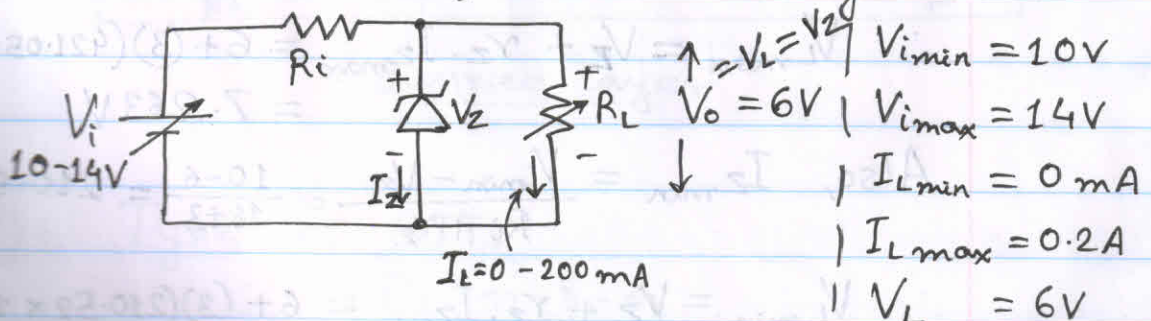 Ri
Vi
10-14V
+
VZ
-
IZ
+
RL
-
IL=0-200mA
= VL = VZ
V0 = 6V
Vimin = 10V
Vimax = 14V
ILmin = 0 mA
ILmax = 0.2A
VL = 6V